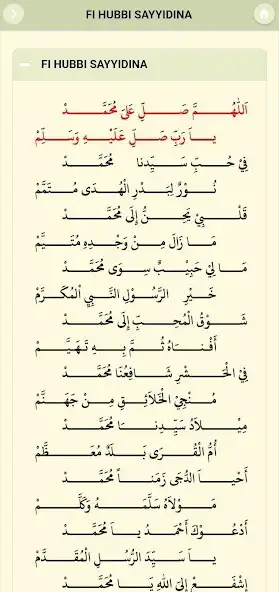 FI HUBBI SAYYIDINA
FI HUBBI SAYYIDINA
اَللّٰهُمَّ صَلِّ عَلَى مُحَمَّدْ
يَا رَبِّ صَلِّ عَلَيْهِ وَسَلِّمْ
فِيْ حُبِّ سَيِّدِنَا مُحَمَّدْ
نُوْرٌ لِبَدْرِ الْهُدَى مُتَمَّمْ
قَلْبِيْ يَحِنُّ إِلَى مُحَمَّدْ
مَا زَالَ مِنْ وَجْدِهِ مُتَيَّمْ
مَا لِيْ حَبِيْبٌ سِوَى مُحَمَّدْ
خَيْرِ الرَّسُوْلِ النَّبِي الْمُكَرَّمْ
شَوْقُ الْمُحِبِّ إِلَى مُحَمَّدْ
أَفْنَاهُ ثُمَّ بِهِ تَهَيَّمْ
فِي الْحَشْرِ شَافِعُنَا مُحَمَّدْ
مُنْجِي الْخَلَائِقِ مِنْ جَهَنَّمْ
مِيْلَادُ سَيِّدِنَا مُحَمَّدْ
أُمُّ الْقُرَى بَلَدٌ مُعَظَّمْ
أَحْيَا الدُّجَى زَمَنًا مُحَمَّدْ
مَوْلَاهُ سَلَّمَهُ وَكَلَّمْ
أَدْعُوْكَ أَحْمَدُ يَا مُحَمَّدْ
يَا سَيِّدَ الرُّسُلِ الْمُقَدَّمْ
إِشْفَعْ إِلَى اللهِ يَا مُحَمَّدْ